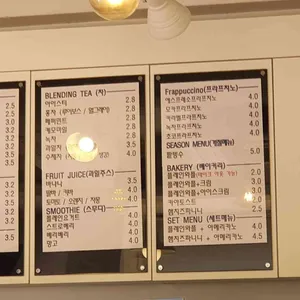 2.5
2.5
3.0
3.2
3.2
3.5
3.2
3.2
3.5
BLENDING TEA (차)
아이스티 2.8
홍차 (루이보스 / 얼그레이) 2.8
페퍼민트 2.8
캐모마일 2.8
녹차 2.8
과일차 3.5
수제차
FRUIT JUICE(과일주스)
바나나 3.5
딸기 / 키위 4.0
토마토 / 오렌지 / 자몽 4.0
SMOOTHIE (스무디)
플레인요거트 4.0
스트로베리 4.0
베리베리 4.0
망고 4.0
Frappuccino(프라프치노)
에스프레소프라프치노 4.0
모카프라프치노 4.0
카라멜프라프치노 4.0
녹차프라프치노 4.0
초코프라프치노 4.0
SEASON MENU(계절메뉴)
팥빙수 5.0
BAKERY (베이커리)
플레인와플 2.5
플레인와플+크림 3.0
플레인와플+아이스크림 3.0
토스트 2.0
햄치즈파니니 3.0
SET MENU (세트메뉴)
플레인와플 + 아메리카노 4.0
햄치즈파니니 + 아메리카노 4.5